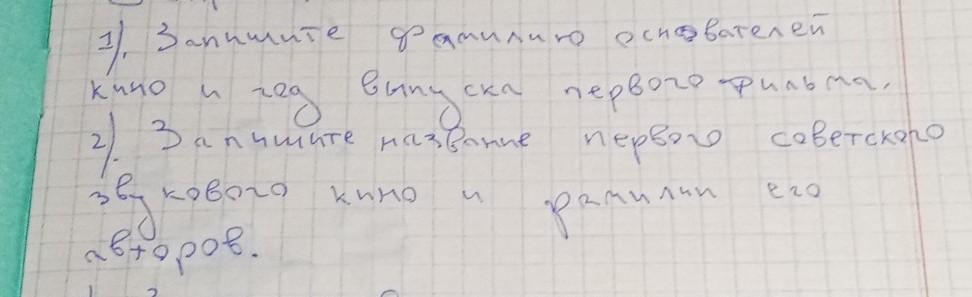 1). Запишите фамилию основателей
кино и год выпуска первого фильма.
2). Запишите название первого советского
звукового кино и фамилии его
авторов.